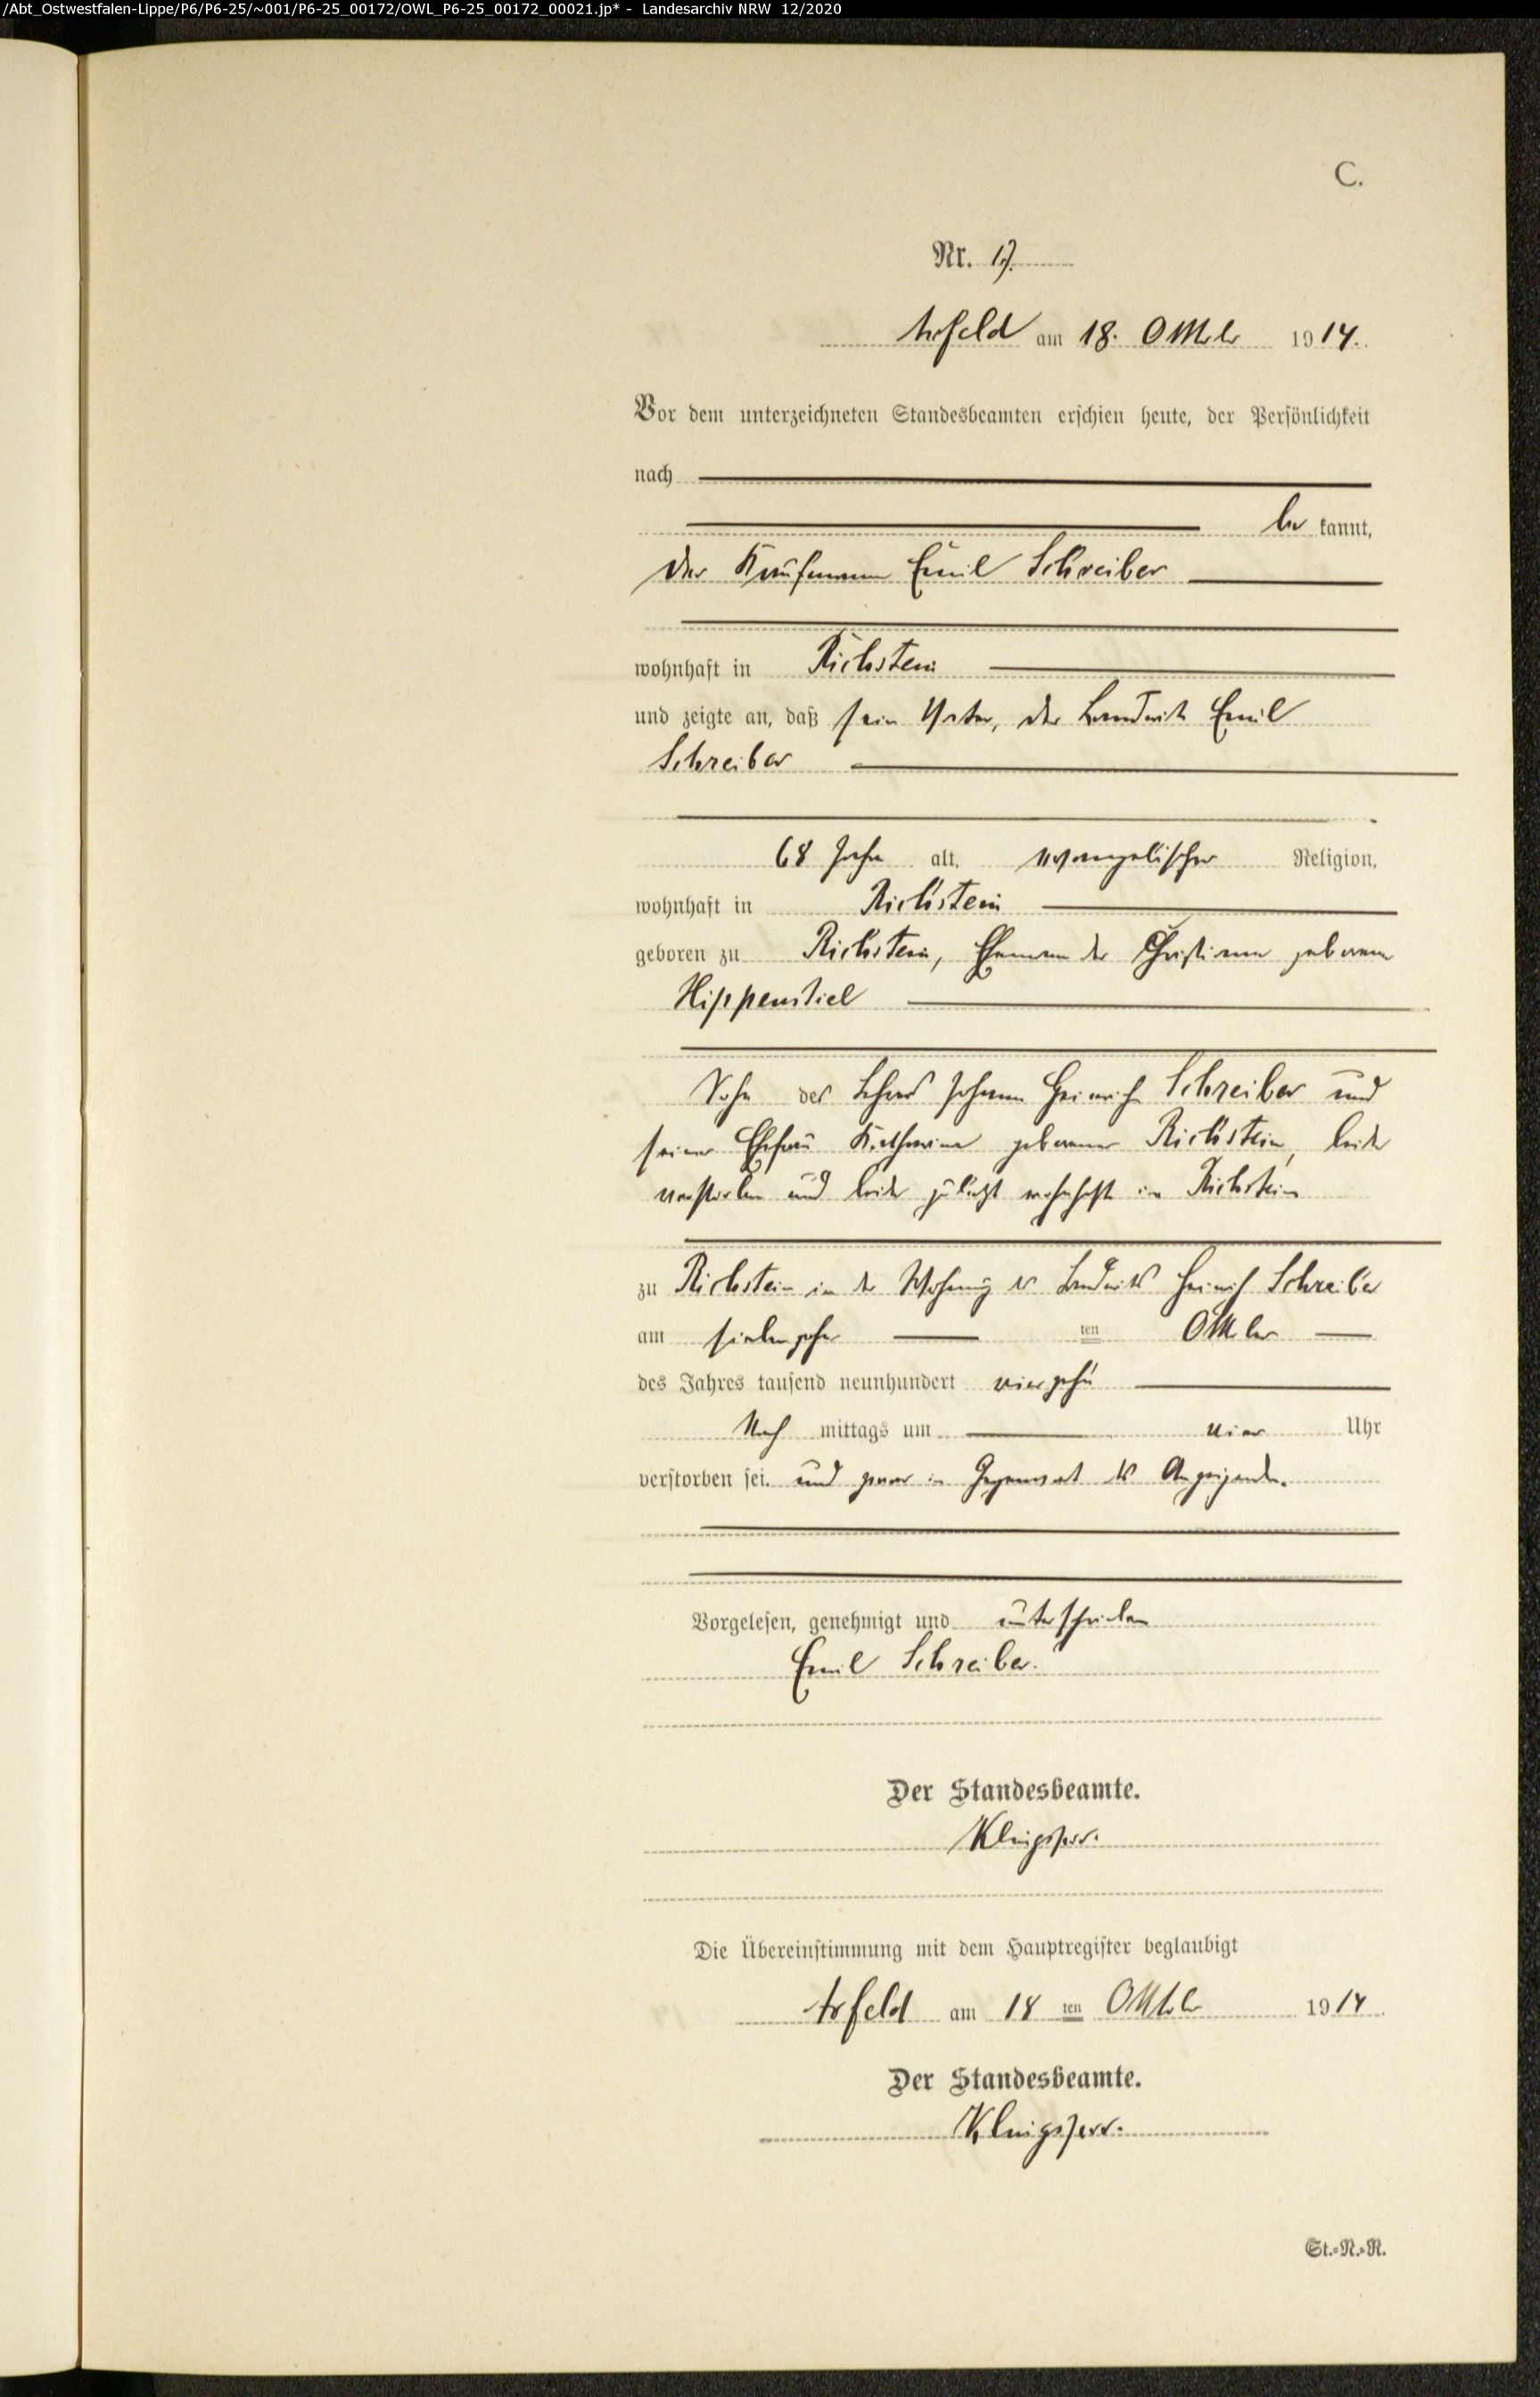 /Abt_Ostwestfalen-Lippe/P6/P6-25/~001/P6-25_00172/OWL_P6-25_00172_00021.jp* - Landesarchiv NRW 12/2020
C.
Nr. 17.
Arfeld am 18. Oktober 1914.
Vor dem unterzeichneten Standesbeamten erschien heute, der Persönlichkeit
nach
be kannt,
der Kaufmann Emil Schreiber
wohnhaft in Richstein
und zeigte an, daß sein Vater, der Landwirt Emil
Schreiber
68 Jahre alt, evangelischer Religion,
wohnhaft in Richstein
geboren zu Richstein, Ehemann der Christiane geborenen
Hippenstiel
Sohn des Lehrers Johann Heinrich Schreiber und
seiner Ehefrau Katharina geborener Richstein, beide
verstorben und beide zuletzt wohnhaft in Richstein
zu Richstein in der Wohnung des Landwirts Heinrich Schreiber
am siebenzehn ten Oktober
des Jahres tausend neunhundert vierzehn
Nach mittags um vier Uhr
verstorben sei. und zwar in Gegenwart des Anzeigenden.
Vorgelesen, genehmigt und unterschrieben
Emil Schreiber.
Der Standesbeamte.
Die Übereinstimmung mit dem Hauptregister beglaubigt
Arfeld am 18 ten Oktober 1914.
Der Standesbeamte.
St.-N.-R.